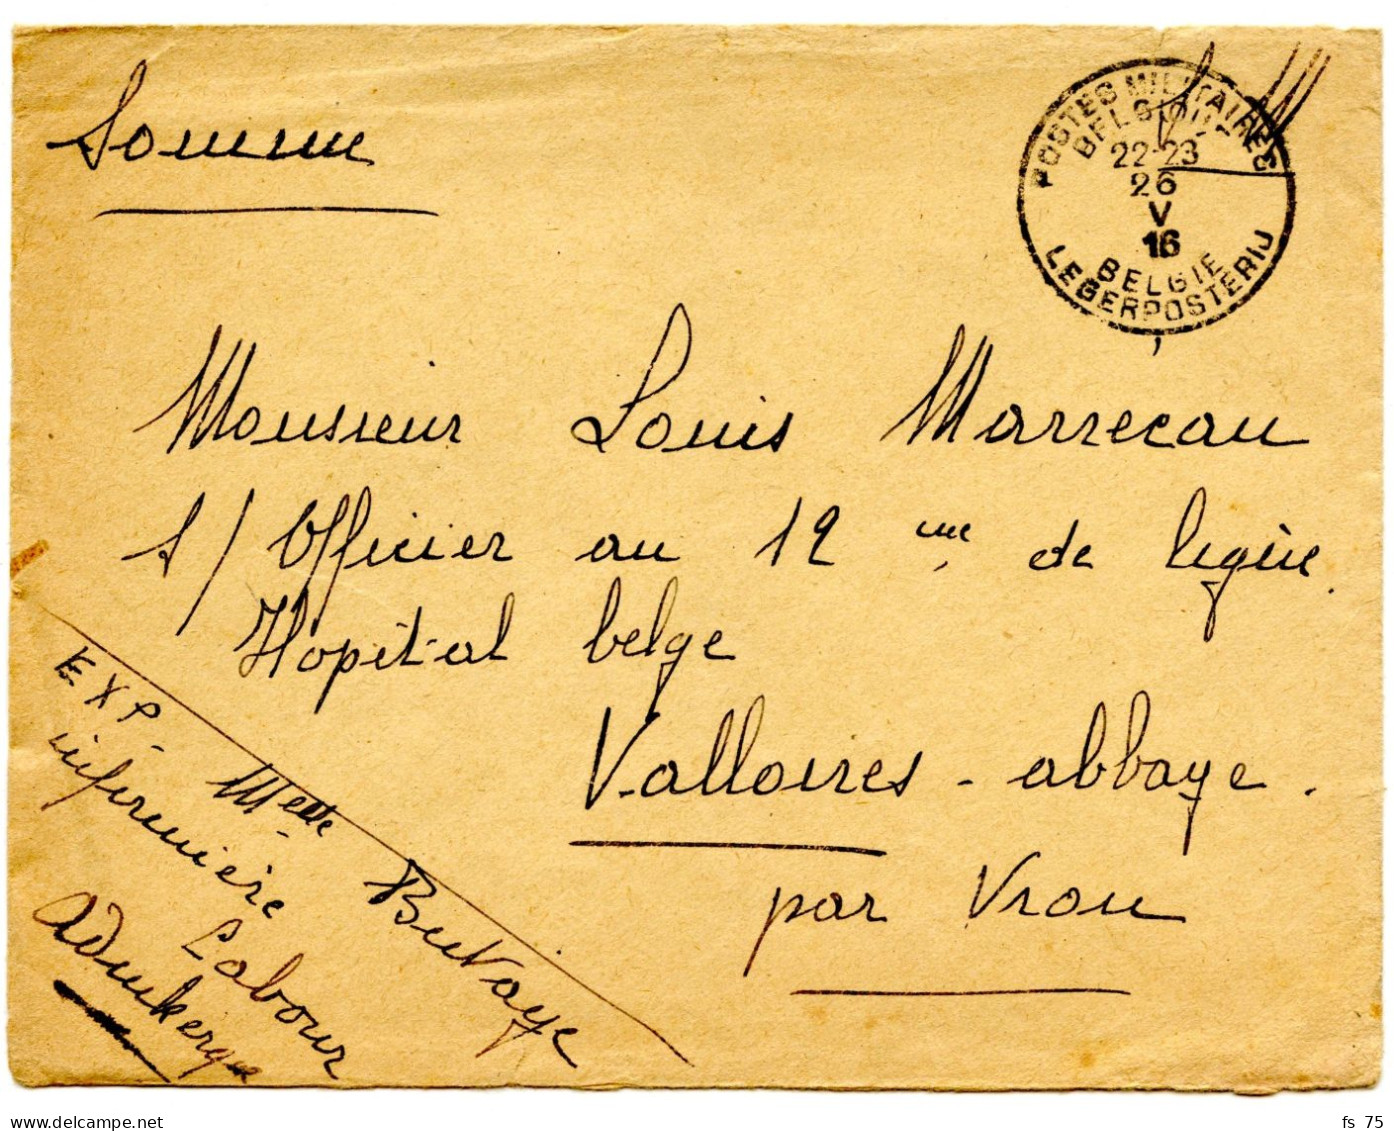 Somme
S. M.
POSTES MILITAIRES
BELGIQUE
22-23
26
V
16
BELGIE
LEGERPOSTERIJ
Monsieur Louis Marrecau
s/Officier au 12 me de ligne.
Hopital belge
Valloires - abbaye.
par Vron
EXP. Melle Butaye
infirmière
Labour
Adinkerque
www.delcampe.net
fs_75